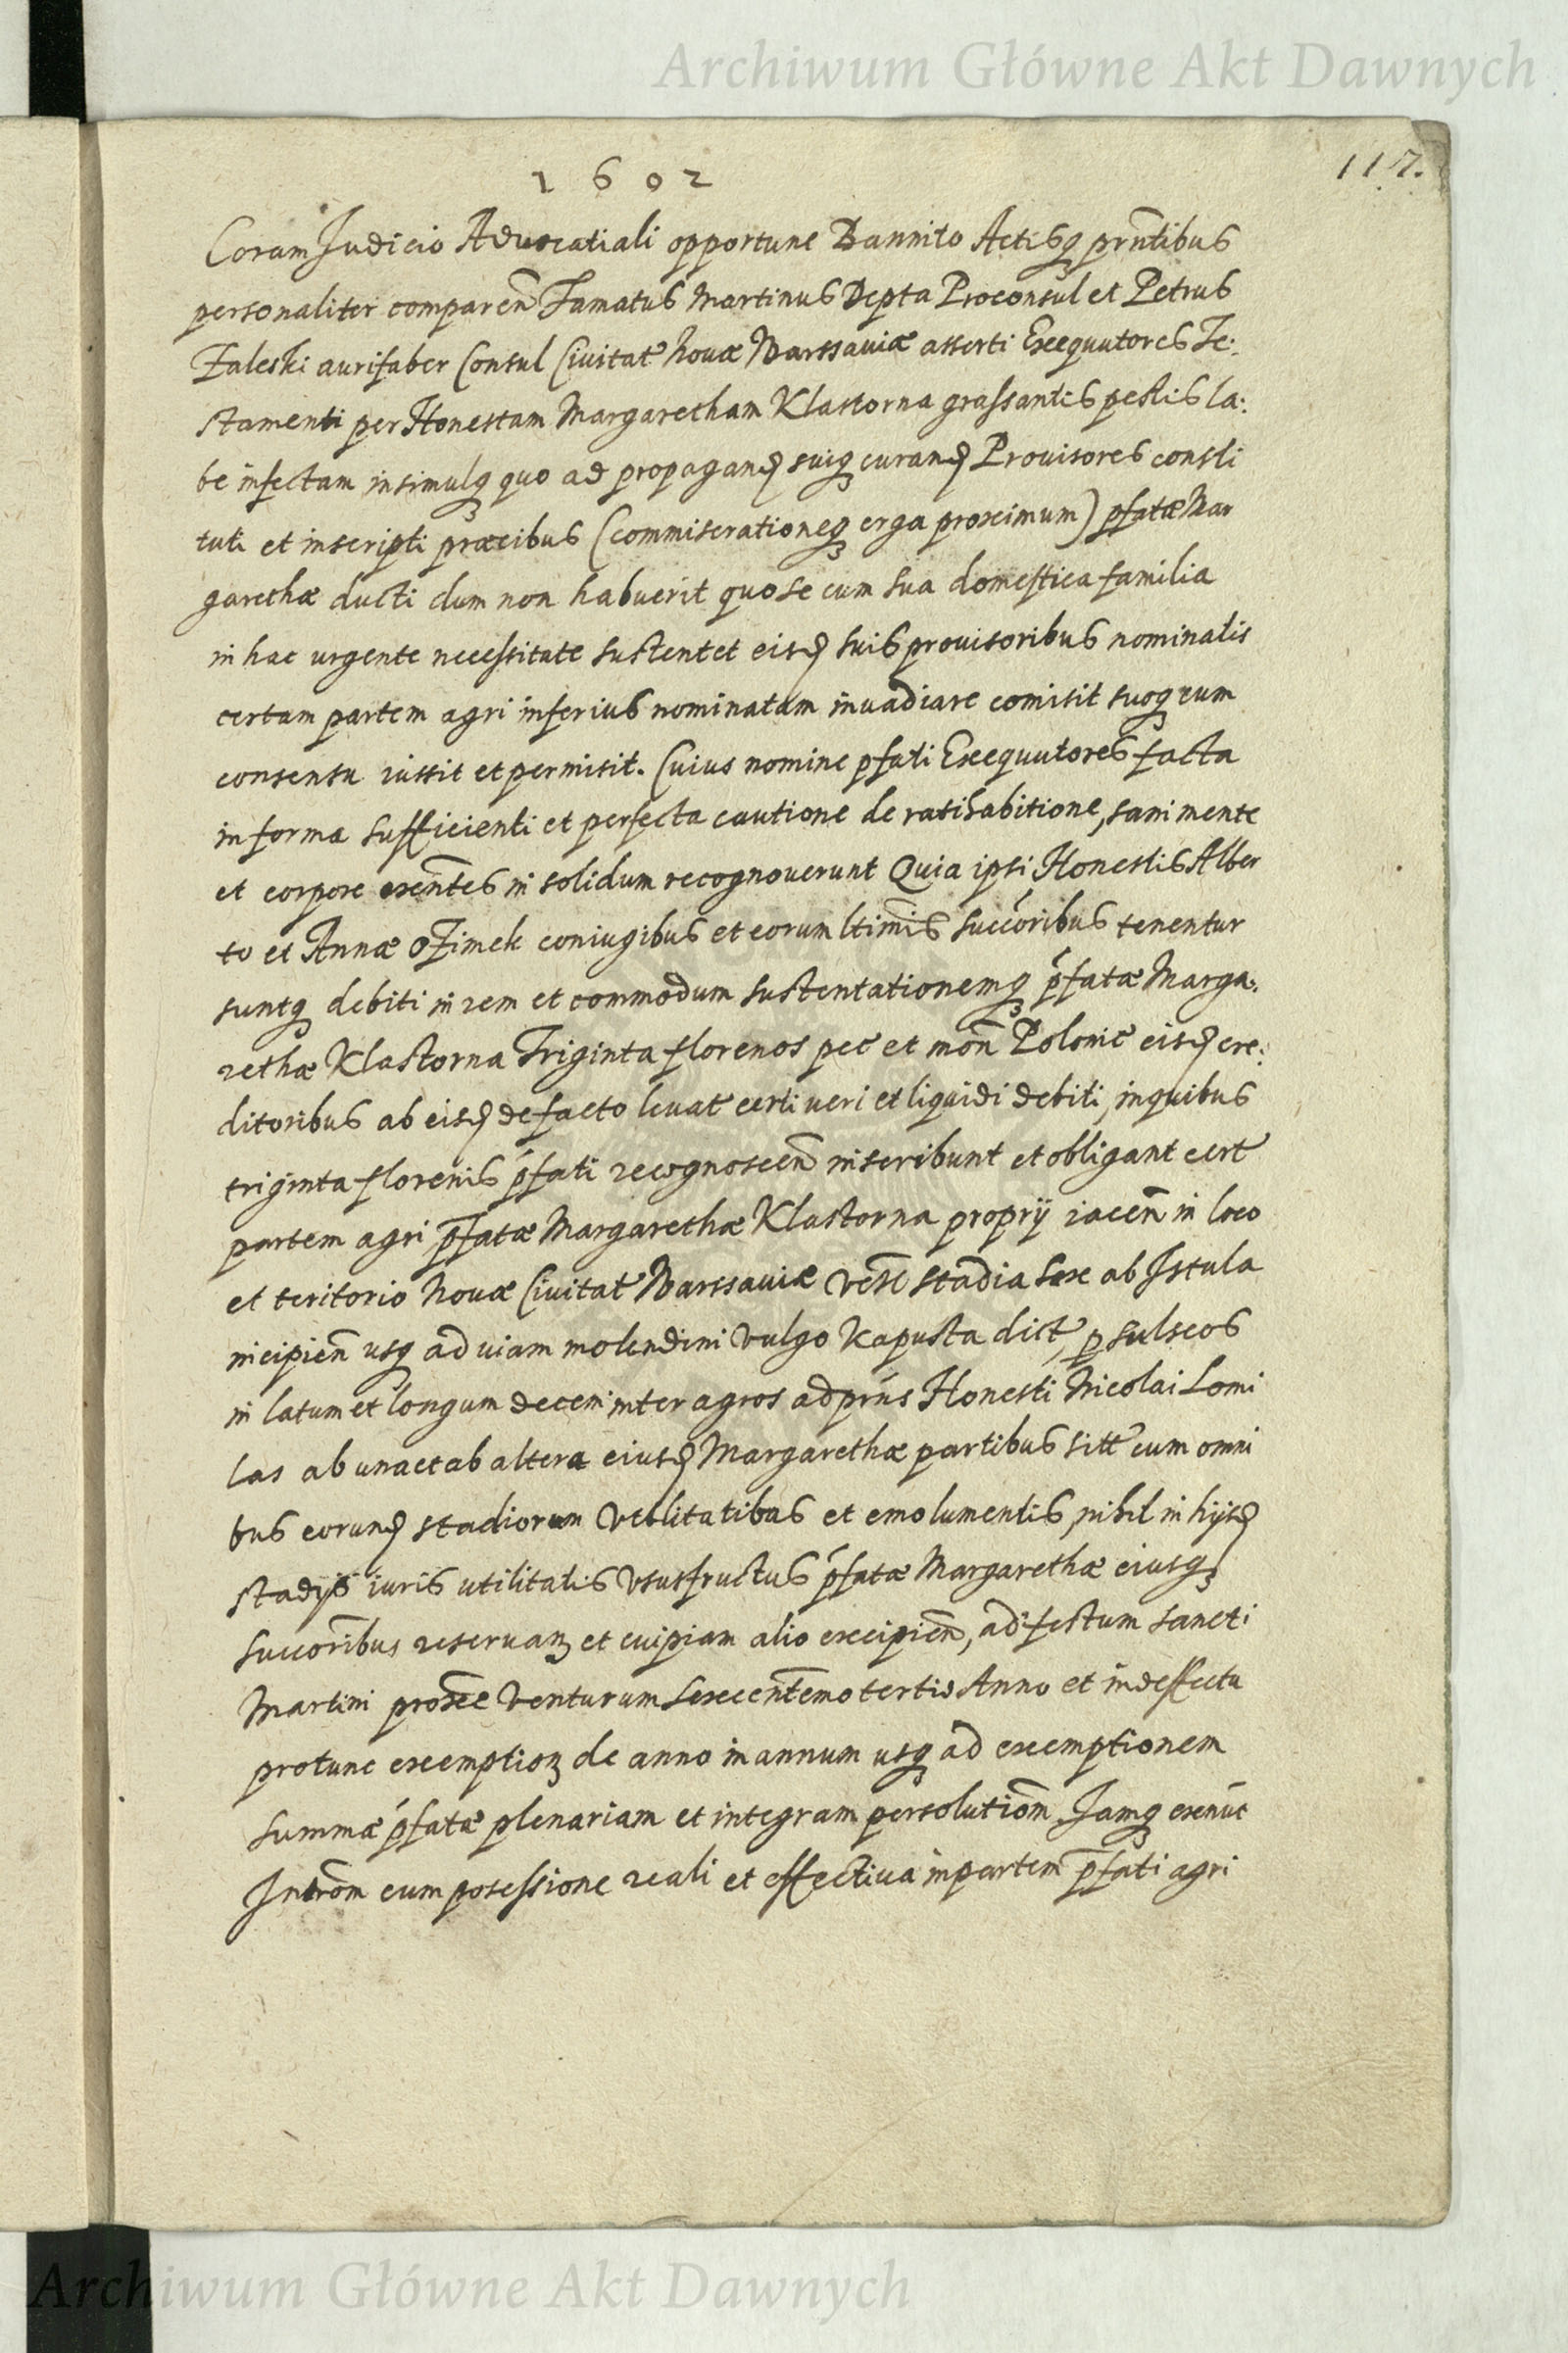 Archiwum Główne Akt Dawnych
117.
1602
Coram Judicio Aduocatiali opportune Bannito Actisq prntibus
personaliter comparen Famatus Martinus Depta Proconsul et Petrus
Zaleski aurifaber Consul Ciuitat Nouæ Warssauiæ asserti Exequutores Te:
stamenti per Honestam Margaretham Klastorna grassantis pestis la:
be infectam insimulq quo ad propagand suiq curand Prouisores consti
tuti et inscripti præcibus (commiserationeq erga proximum) pfatæ Mar
garethæ ducti dum non habuerit quo se cum sua domestica familia
in hac urgente necessitate sustentet eisd suis prouisoribus nominatis
certam partem agri inferius nominatam inuadiare comisit suoq cum
consensu iussit et permisit. Cuius nomine pfati Exequutores facta
in forma sufficienti et perfecta cautione de ratihabitione, sani mente
et corpore exentes in solidum recognouerunt Quia ipsi Honestis Alber
to et Annæ Ozimek coniugibus et eorum ltimis succoribus tenentur
suntq debiti in rem et commodum sustentationemq pfatæ Marga:
rethæ Klastorna Triginta florenos pec et mon Polonic eisd cre:
ditoribus ab eisd de facto leuat certi ueri et liquidi debiti, in quibus
triginta florenis pfati recognoscen inscribunt et obligant cert
partem agri pfatæ Margarethæ Klastorna proprij iacen in loco
et teritorio Nouæ Ciuitat Warssauiæ stadia sex ab Istula
incipien usq ad uiam molendini vulgo Kapusta dict, p sulscos
in latum et longum decem inter agros ad prns Honesti Nicolai Lomi
las ab una et ab altera eiusd Margarethæ partibus sitt cum omni
bus eorund stadiorum vtilitatibus et emolumentis, nihil in hijsd
stadijs iuris utilitatis vsusfructus pfatæ Margarethæ eiusq
succoribus reseruan et cuipiam alio excipien, ad festum sancti
Martini proxe venturum sexcentemo tertio Anno et in deffectu
pro tunc exemption de anno in annum usq ad exemptionem
summæ pfatæ plenariam et integram persolutiom Jamq exnunc
Introm cum posessione reali et effectiua in partem pfati agri
Archiwum Główne Akt Dawnych